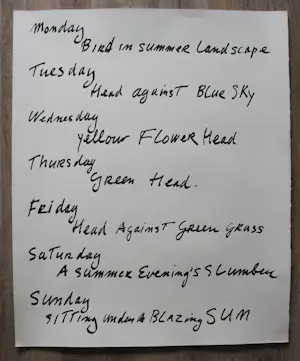 Monday
Bird in summer Landscape
Tuesday
Head against Blue Sky
Wednesday
yellow Flower Head
Thursday
Green Head.
Friday
Head Against Green Grass
Saturday
A summer Evening's Slumber
Sunday
sitting under A Blazing SUN